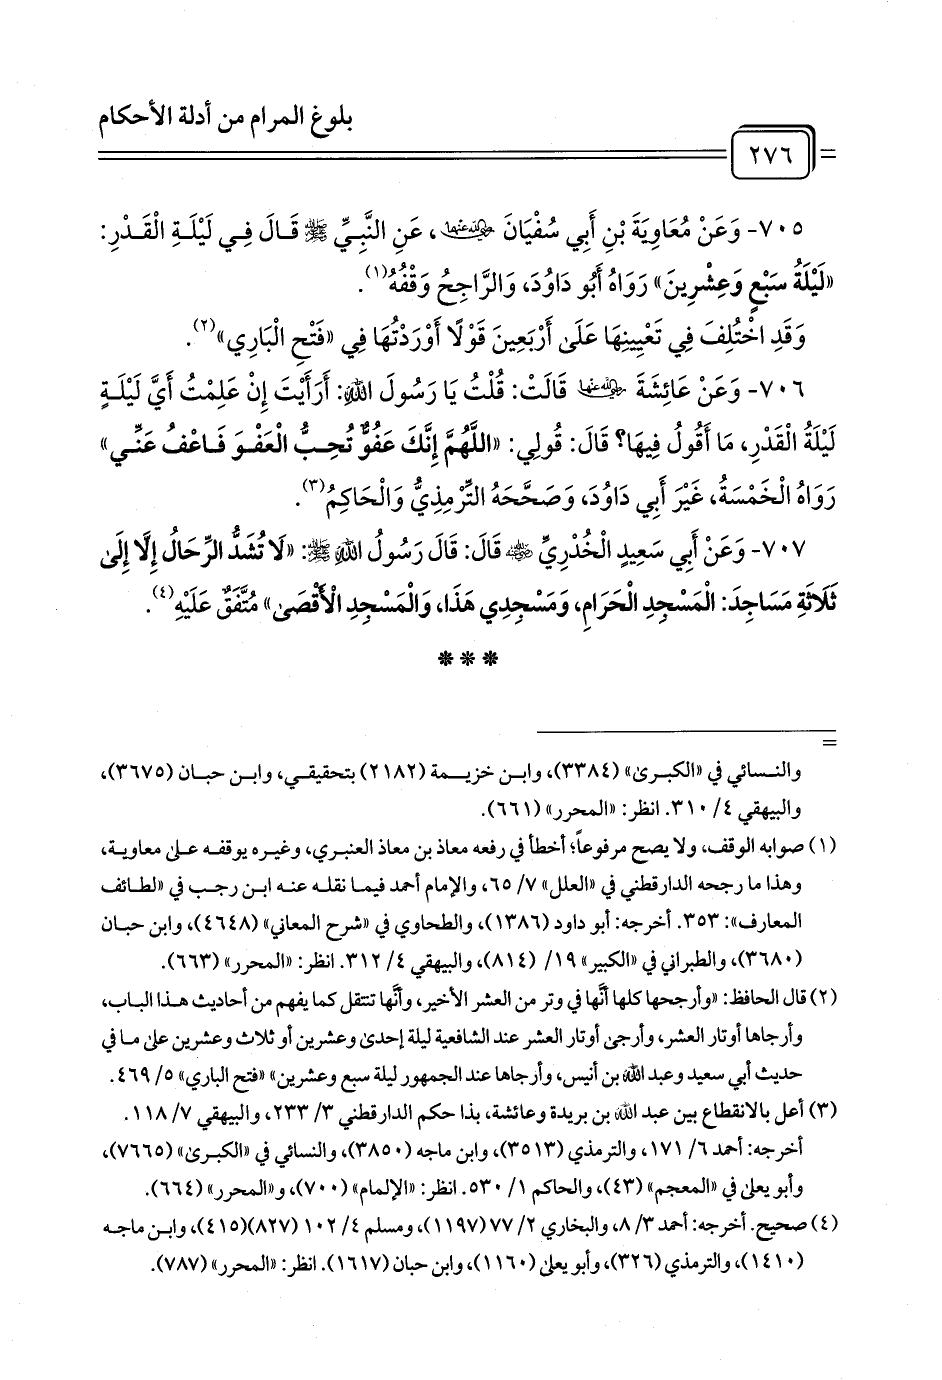 بلوغ المرام من أدلة الأحكام
٢٧٦
٧٠٥- وَعَنْ مُعَاوِيَةَ بْنِ أَبِي سُفْيَانَ رضي الله عنهما، عَنِ النَّبِيِّ ﷺ قَالَ فِي لَيْلَةِ الْقَدْرِ:
«لَيْلَةُ سَبْعٍ وَعِشْرِينَ» رَوَاهُ أَبُو دَاوُدَ، وَالرَّاجِحُ وَقْفُهُ(١).
وَقَدِ اخْتُلِفَ فِي تَعْيِينِهَا عَلَىٰ أَرْبَعِينَ قَوْلًا أَوْرَدْتُهَا فِي «فَتْحِ الْبَارِي»(٢).
٧٠٦- وَعَنْ عَائِشَةَ رضي الله عنها قَالَتْ: قُلْتُ يَا رَسُولَ اللهِ: أَرَأَيْتَ إِنْ عَلِمْتُ أَيَّ لَيْلَةٍ
لَيْلَةُ الْقَدْرِ، مَا أَقُولُ فِيهَا؟ قَالَ: قُولِي: «اللَّهُمَّ إِنَّكَ عَفُوٌّ تُحِبُّ الْعَفْوَ فَاعْفُ عَنِّي»
رَوَاهُ الْخَمْسَةُ، غَيْرَ أَبِي دَاوُدَ، وَصَحَّحَهُ التِّرْمِذِيُّ وَالْحَاكِمُ(٣).
٧٠٧- وَعَنْ أَبِي سَعِيدٍ الْخُدْرِيِّ رضي الله عنه قَالَ: قَالَ رَسُولُ اللهِ ﷺ: «لَا تُشَدُّ الرِّحَالُ إِلَّا إِلَىٰ
ثَلَاثَةِ مَسَاجِدَ: الْمَسْجِدِ الْحَرَامِ، وَمَسْجِدِي هَذَا، وَالْمَسْجِدِ الْأَقْصَىٰ» مُتَّفَقٌ عَلَيْهِ(٤).
***
=
والنسائي في «الكبرىٰ» (٣٣٨٤)، وابن خزيمة (٢١٨٢) بتحقيقي، وابن حبان (٣٦٧٥)،
والبيهقي ٤/ ٣١٠. انظر: «المحرر» (٦٦١).
(١) صوابه الوقف، ولا يصح مرفوعاً؛ أخطأ في رفعه معاذ بن معاذ العنبري، وغيره يوقفه علىٰ معاوية،
وهذا ما رجحه الدارقطني في «العلل» ٧/ ٦٥، والإمام أحمد فيما نقله عنه ابن رجب في «لطائف
المعارف»: ٣٥٣. أخرجه: أبو داود (١٣٨٦)، والطحاوي في «شرح المعاني» (٤٦٤٨)، وابن حبان
(٣٦٨٠)، والطبراني في «الكبير» ١٩/ (٨١٤)، والبيهقي ٤/ ٣١٢. انظر: «المحرر» (٦٦٣).
(٢) قال الحافظ: «وأرجحها كلها أنَّها في وتر من العشر الأخير، وأنَّها تنتقل كما يفهم من أحاديث هذا الباب،
وأرجاها أوتار العشر، وأرجىٰ أوتار العشر عند الشافعية ليلة إحدىٰ وعشرين أو ثلاث وعشرين علىٰ ما في
حديث أبي سعيد وعبد الله بن أنيس، وأرجاها عند الجمهور ليلة سبع وعشرين» «فتح الباري» ٥/ ٤٦٩.
(٣) أعل بالانقطاع بين عبد الله بن بريدة وعائشة، بذا حكم الدارقطني ٣/ ٢٣٣، والبيهقي ٧/ ١١٨.
أخرجه: أحمد ٦/ ١٧١، والترمذي (٣٥١٣)، وابن ماجه (٣٨٥٠)، والنسائي في «الكبرىٰ» (٧٦٦٥)،
وأبو يعلىٰ في «المعجم» (٤٣)، والحاكم ١/ ٥٣٠. انظر: «الإلمام» (٧٠٠)، و«المحرر» (٦٦٤).
(٤) صحيح. أخرجه: أحمد ٣/ ٨، والبخاري ٢/ ٧٧ (١١٩٧)، ومسلم ٤/ ١٠٢ (٨٢٧)(٤١٥)، وابن ماجه
(١٤١٠)، والترمذي (٣٢٦)، وأبو يعلىٰ (١١٦٠)، وابن حبان (١٦١٧). انظر: «المحرر» (٧٨٧).